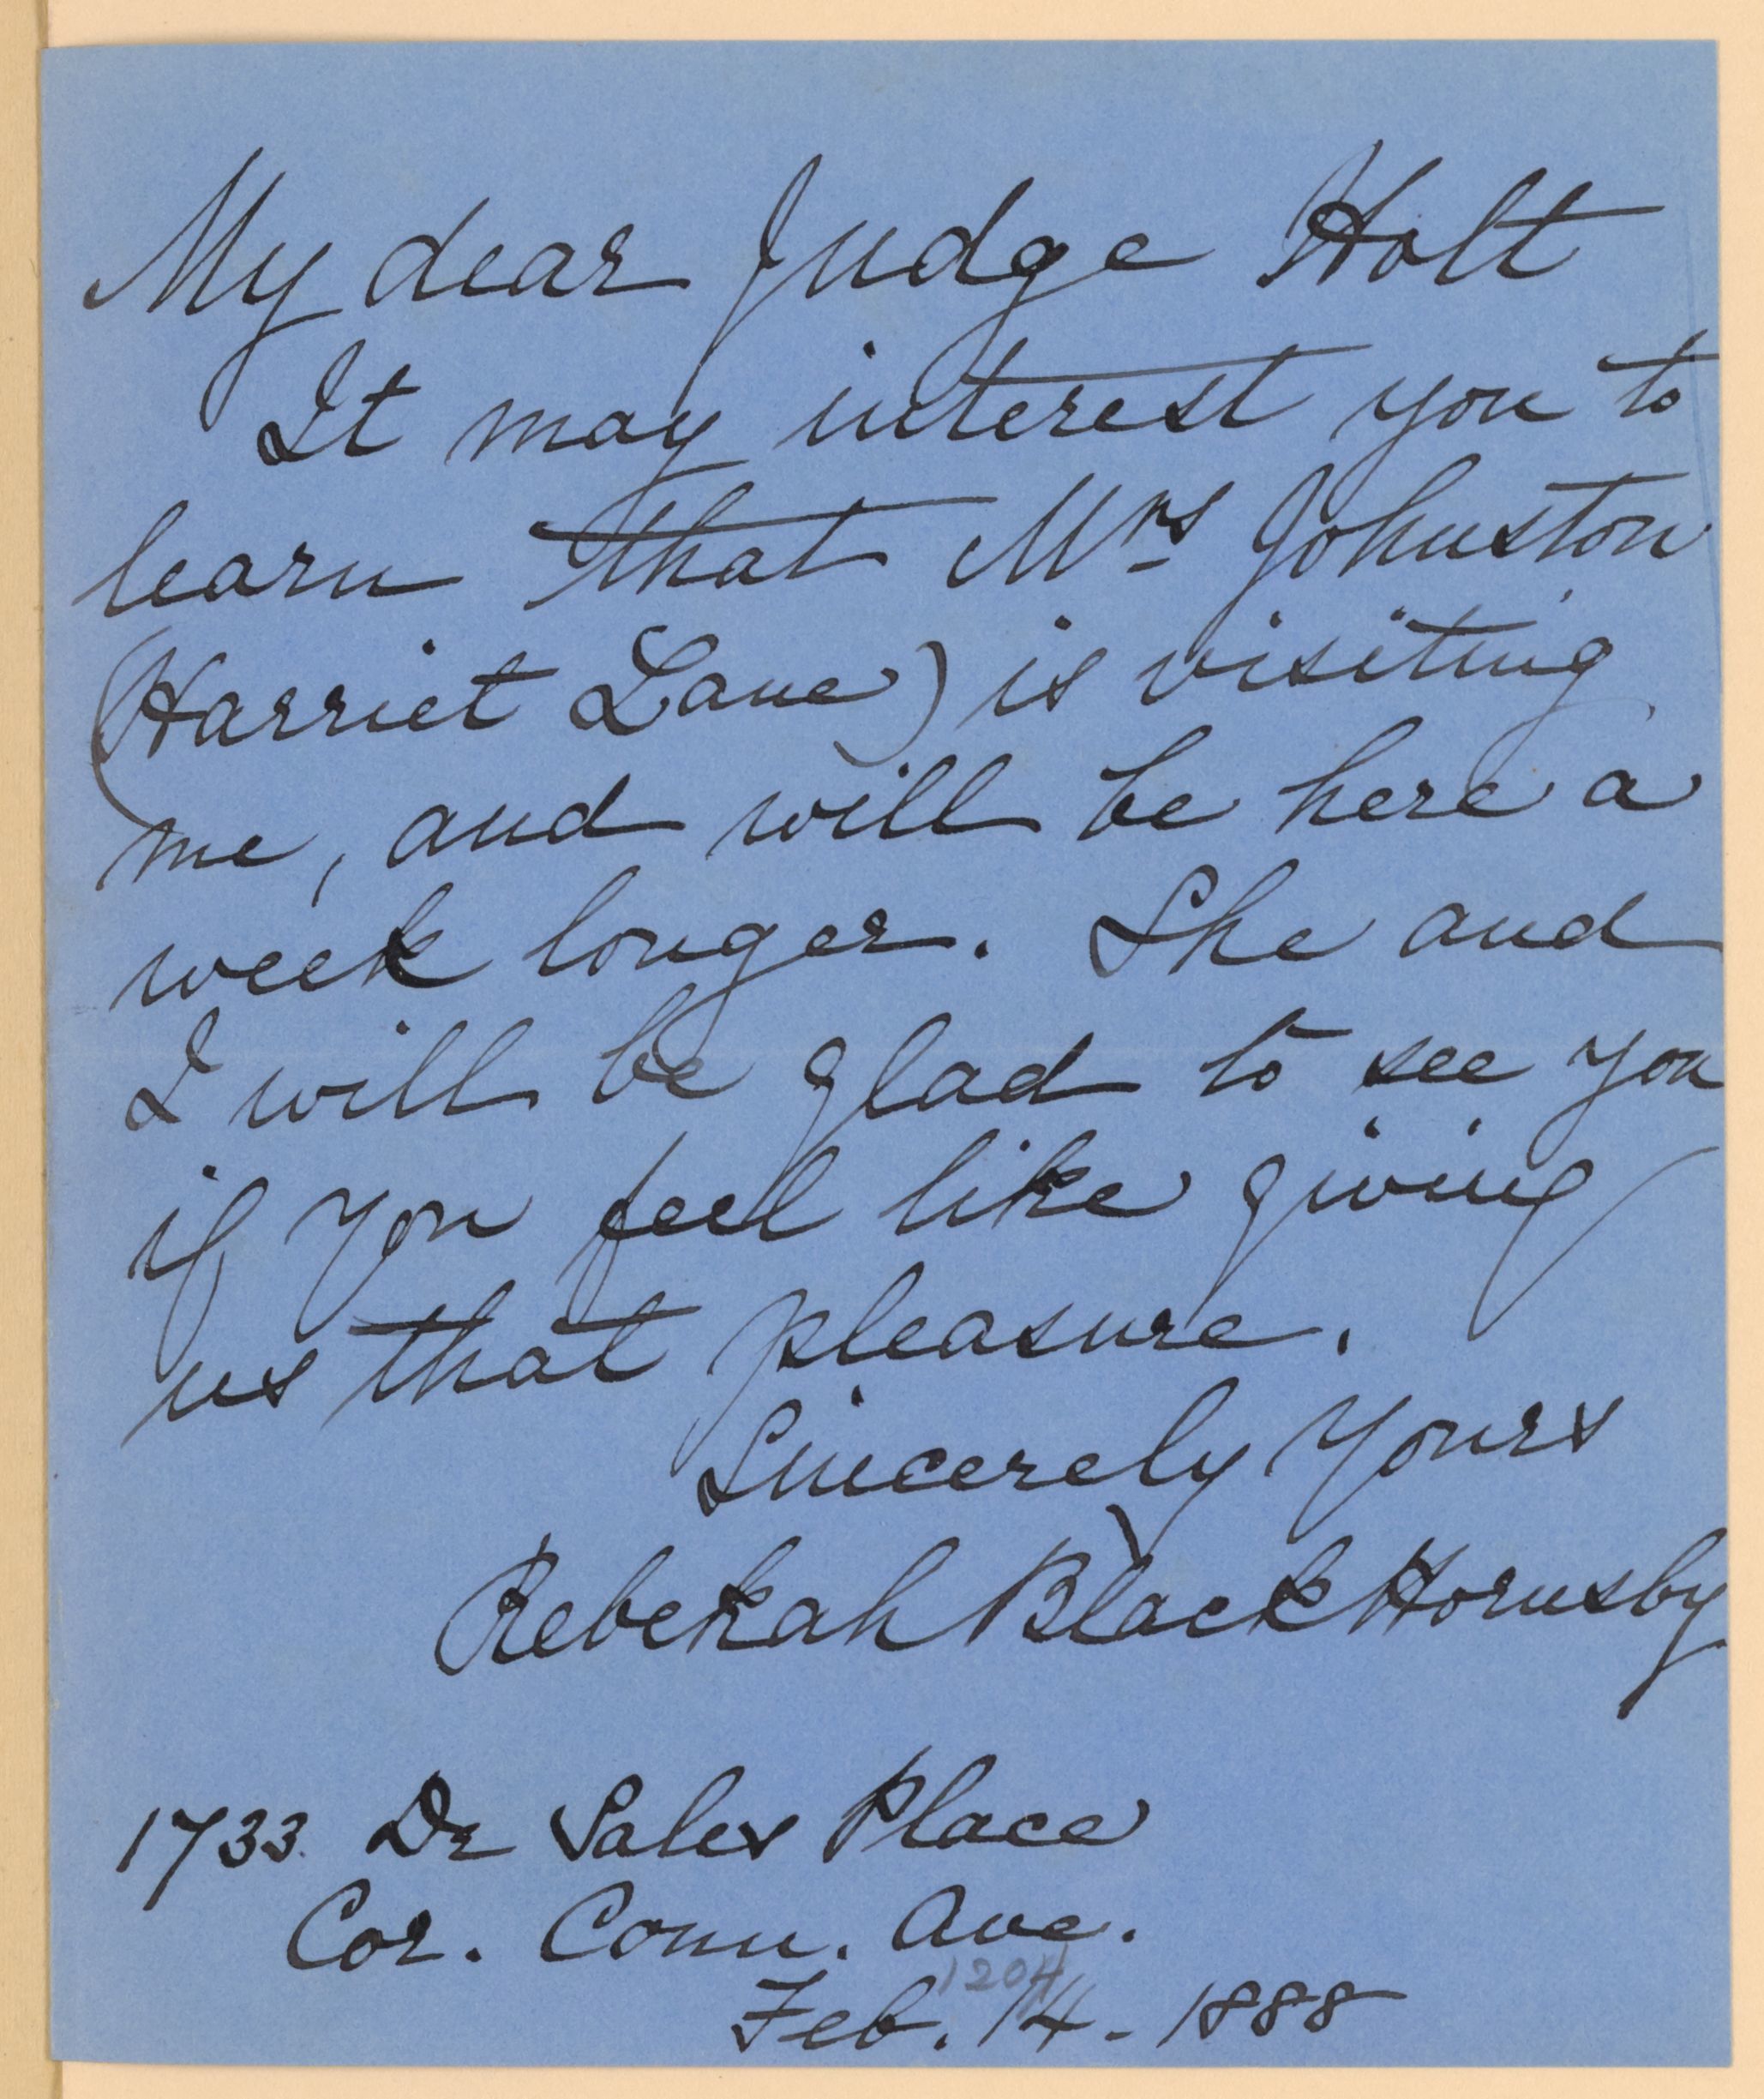 My dear Judge Holt
It may interest you to
learn that Mrs Johnston
(Harriet Lane) is visiting
me, and will be here a
week longer. She and
I will be glad to see you
if you feel like giving
us that pleasure.
Sincerely Yours
Rebekah Black Hornsby
1733 De Sales Place
Cor. Conn. Ave.
1204
Feb. 14 - 1888